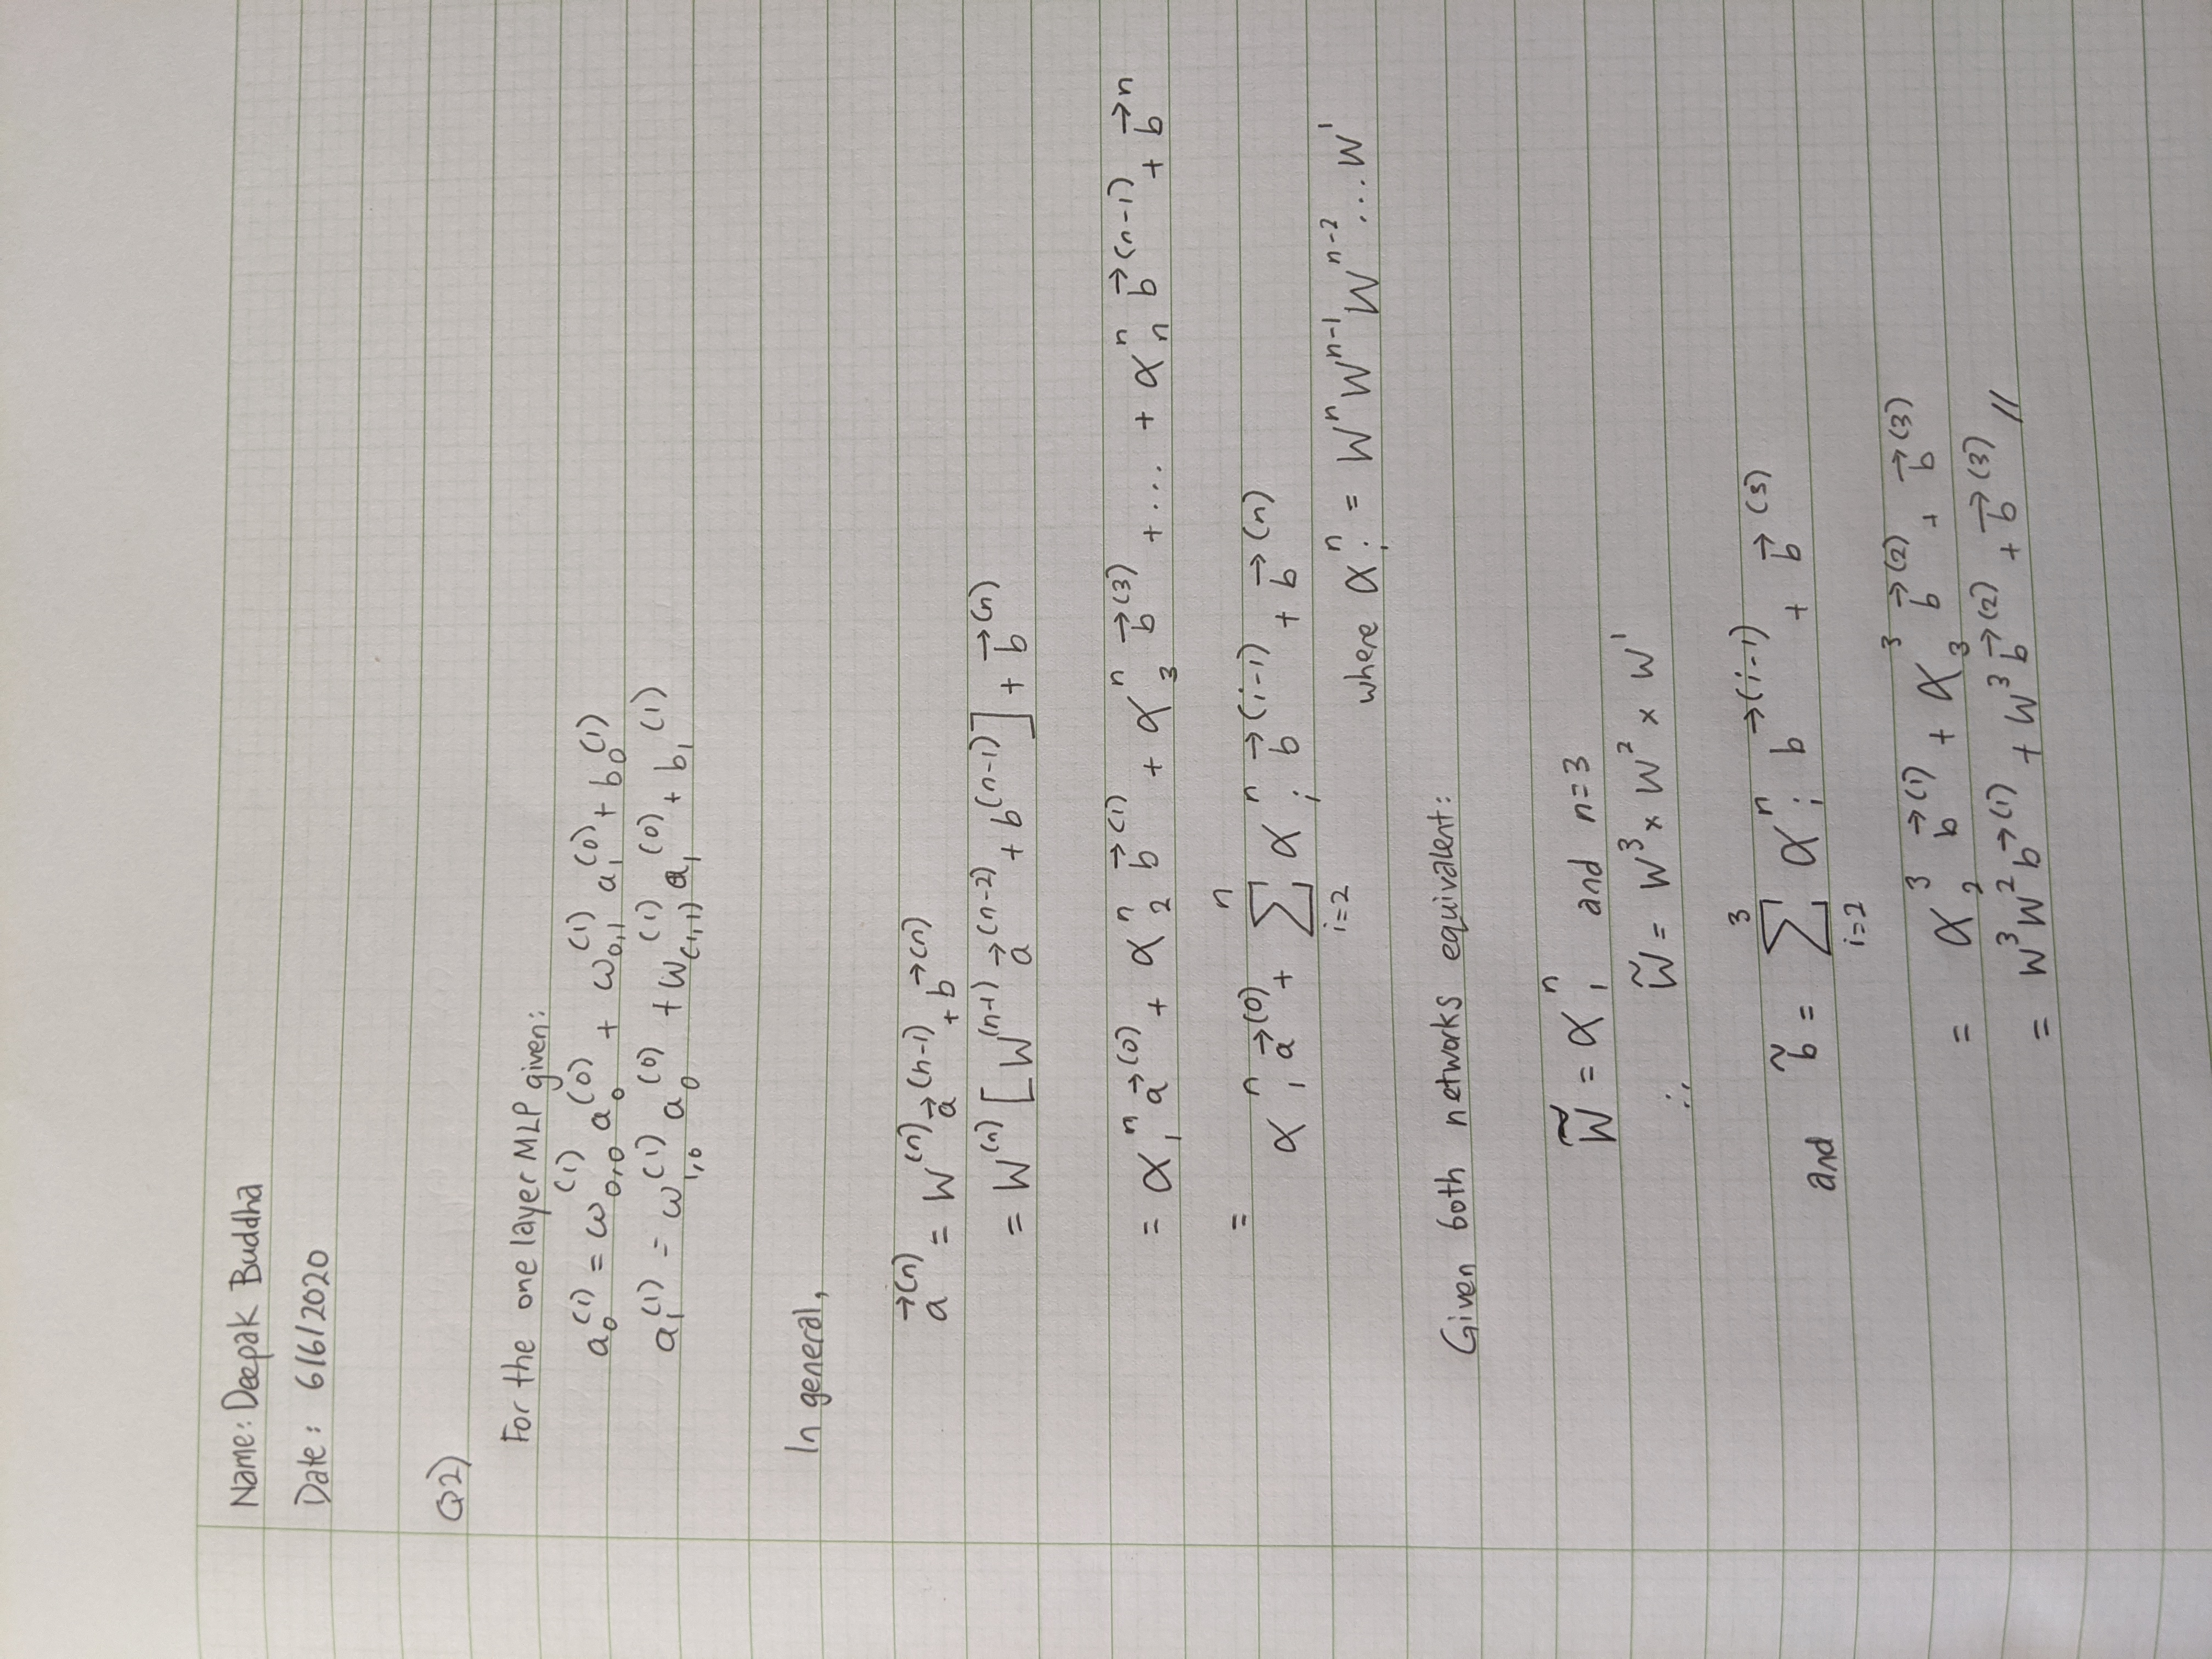 Name: Deepak Buddha
Date: 6/6/2020
Q2)
For the one layer MLP given:
a₀⁽¹⁾ = ω₀,₀⁽¹⁾ a₀⁽⁰⁾ + ω₀,₁⁽¹⁾ a₁⁽⁰⁾ + b₀⁽¹⁾
a₁⁽¹⁾ = ω₁,₀⁽¹⁾ a₀⁽⁰⁾ + w₍₁,₁₎⁽¹⁾ a₁⁽⁰⁾ + b₁⁽¹⁾
In general,
a⃗⁽ⁿ⁾ = W⁽ⁿ⁾ a⃗⁽ⁿ⁻¹⁾ + b⃗⁽ⁿ⁾
= W⁽ⁿ⁾ [W⁽ⁿ⁻¹⁾ a⃗⁽ⁿ⁻²⁾ + b⁽ⁿ⁻¹⁾] + b⃗⁽ⁿ⁾
= α₁ⁿ a⃗⁽⁰⁾ + α₂ⁿ b⃗⁽¹⁾ + α₃ⁿ b⃗⁽³⁾ + ... + αₙⁿ b⃗⁽ⁿ⁻¹⁾ + b⃗ⁿ
= α₁ⁿ a⃗⁽⁰⁾ + Σᵢ₌₂ⁿ αᵢⁿ b⃗⁽ⁱ⁻¹⁾ + b⃗⁽ⁿ⁾
where αᵢⁿ = Wⁿ Wⁿ⁻¹ Wⁿ⁻² ... W¹
Given both networks equivalent:
W̃ = α₁ⁿ and n=3
∴ W̃ = W³ × W² × W¹
and b̃ = Σᵢ₌₂³ αᵢⁿ b⃗⁽ⁱ⁻¹⁾ + b⃗⁽³⁾
= α₂³ b⃗⁽¹⁾ + α₃³ b⃗⁽²⁾ + b⃗⁽³⁾
= W³W² b⃗⁽¹⁾ + W³ b⃗⁽²⁾ + b⃗⁽³⁾ //